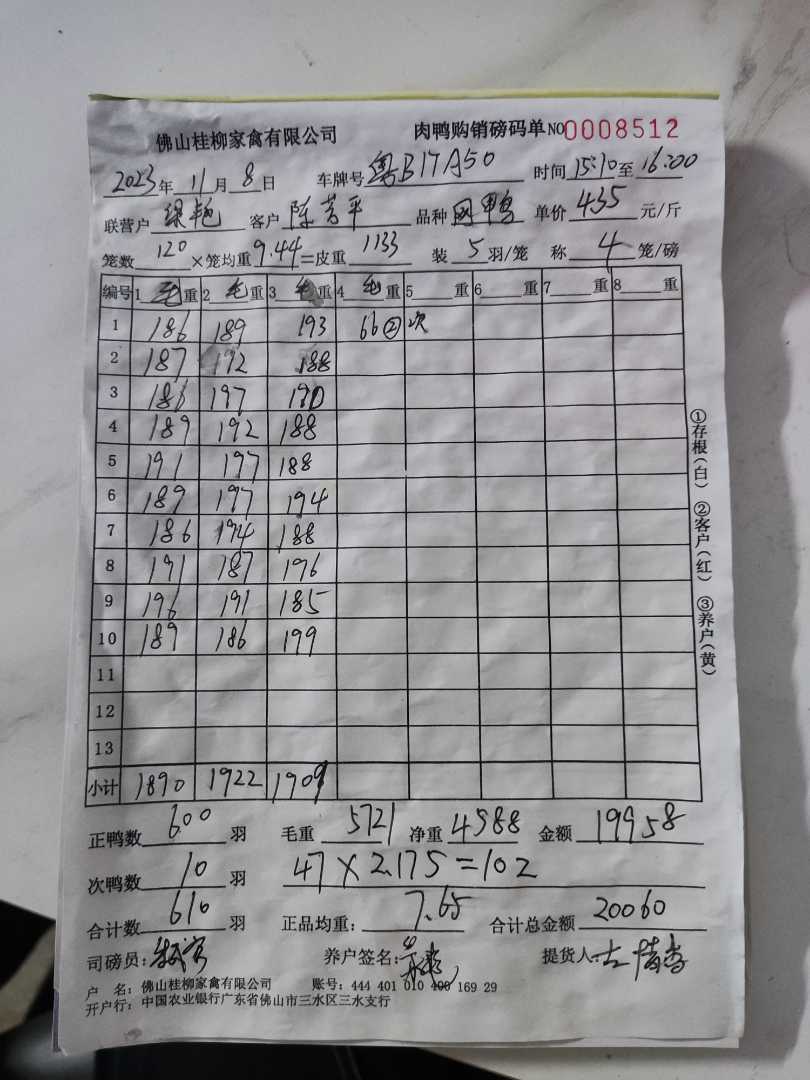 佛山桂柳家禽有限公司 肉鸭购销磅码单 NO0008512
2023年11月8日 车牌号粤B17A50 时间15:10至16:00
联营户 客户陈芳平 品种网鸭 单价435元/斤
笼数120×笼均重9.44=皮重1133 装5羽/笼 称4笼/磅
编号 1毛重 2毛重 3毛重 4毛重 5重 6重 7重 8重
1 186 189 193 66② 次
2 187 192 188
3 186 197 190
4 189 192 188
5 191 197 188
6 189 197 194
7 186 194 188
8 191 187 196
9 196 191 185
10 189 186 199
11
12
13
小计 1890 1922 1909
正鸭数600羽 毛重5721 净重4588 金额19958
次鸭数10羽 47×2.175=102
合计数610羽 正品均重:7.65 合计总金额20060
司磅员: 养户签名: 提货人:
户 名:佛山桂柳家禽有限公司 账号:444 401 010 400 169 29
开户行:中国农业银行广东省佛山市三水区三水支行
①存根(白) ②客户(红) ③养户(黄)